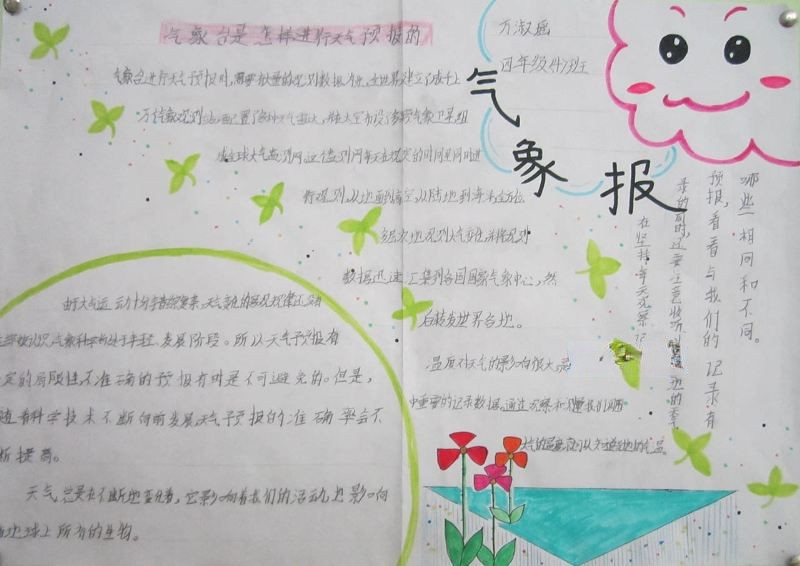 气象台是怎样进行天气预报的
气象台进行天气预报时，需要大量的观测数据。全世界建立了成千上
万个气象观测站，配置了各种天气雷达，在太空布设了多颗气象卫星，组
成全球大气监测网。这个监测网每天在规定的时间里同时进
行观测，从地面到高空，从陆地到海洋，全方位
多层次地观测大气变化，并将观测
数据迅速汇集到各国国家气象中心，然
后转发世界各地。
万淑瑶
四年级
气象报
由于大气运动十分复杂，天气变化的客观规律还没有
认识，气象科学尚处于年轻、发展阶段。所以天气预报有
定的局限性，不准确的预报有时是不可避免的。但是，
随着科学技术不断向前发展，天气预报的准确率会不
断提高。
天气总是在不断地变化着，它影响着我们的活动，也影响
地球上所有的生物。
温度对天气的影响很大，是
中重要的记录数据，通过观察和测量我们
在坚持每天观察记
录的同时，还要注意收听
预报，看看与我们的记录有
哪些相同和不同。